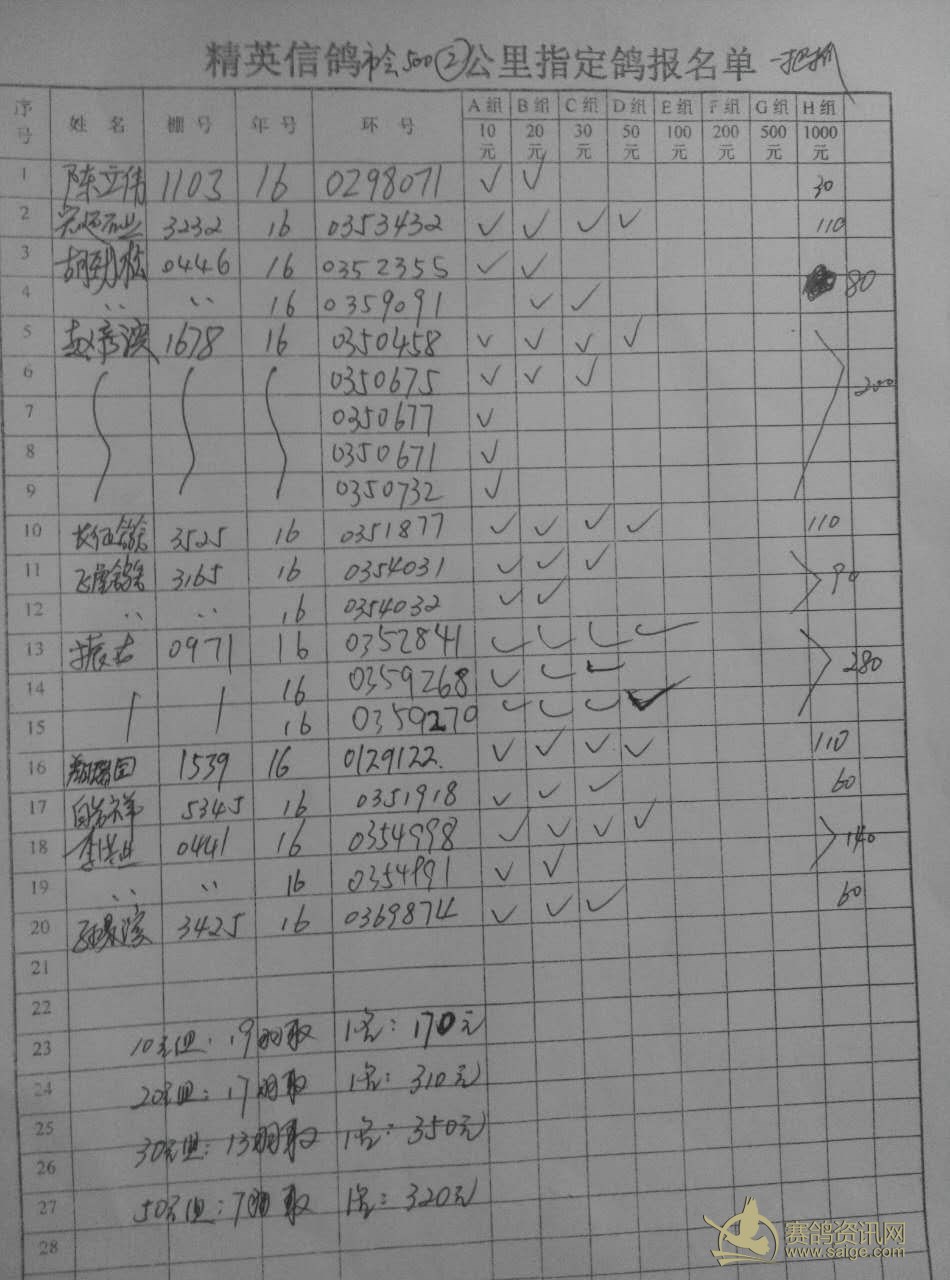 精英信鸽 500②公里指定鸽报名单 一把抓
序号 姓名 棚号 年号 环号 A组10元 B组20元 C组30元 D组50元 E组100元 F组200元 G组500元 H组1000元
1 陈立伟 1103 16 0298071 ✓ ✓ 30
2 3232 16 0353432 ✓ ✓ ✓ ✓ 110
3 胡劲松 0446 16 0352355 ✓ ✓
4 〃 〃 16 0359091 ✓ ✓ 80
5 赵彦滨 1678 16 0350458 ✓ ✓ ✓ ✓
6 0350675 ✓ ✓ ✓ 200
7 0350677 ✓
8 0350671 ✓
9 0350732 ✓
10 3525 16 0351877 ✓ ✓ ✓ ✓ 110
11 3165 16 0354031 ✓ ✓ ✓ 90
12 〃 〃 16 0354032 ✓ ✓
13 0971 16 0352841 ✓ ✓ ✓ ✓
14 16 0359268 ✓ ✓ ✓ 280
15 16 0359270 ✓ ✓ ✓ ✓
16 1539 16 0129122. ✓ ✓ ✓ ✓ 110
17 5345 16 0351918 ✓ ✓ ✓ 60
18 0441 16 0354998 ✓ ✓ ✓ ✓ 140
19 〃 〃 16 0354891 ✓ ✓
20 3425 16 0369874 ✓ ✓ ✓ 60
21
22
23 10元组: 19羽取 1名: 170元
24 20元组: 17羽取 1名: 310元
25 30元组: 13羽取 1名: 350元
26
27 50元组: 7羽取 1名: 320元
28
赛鸽资讯网
www.saige.com